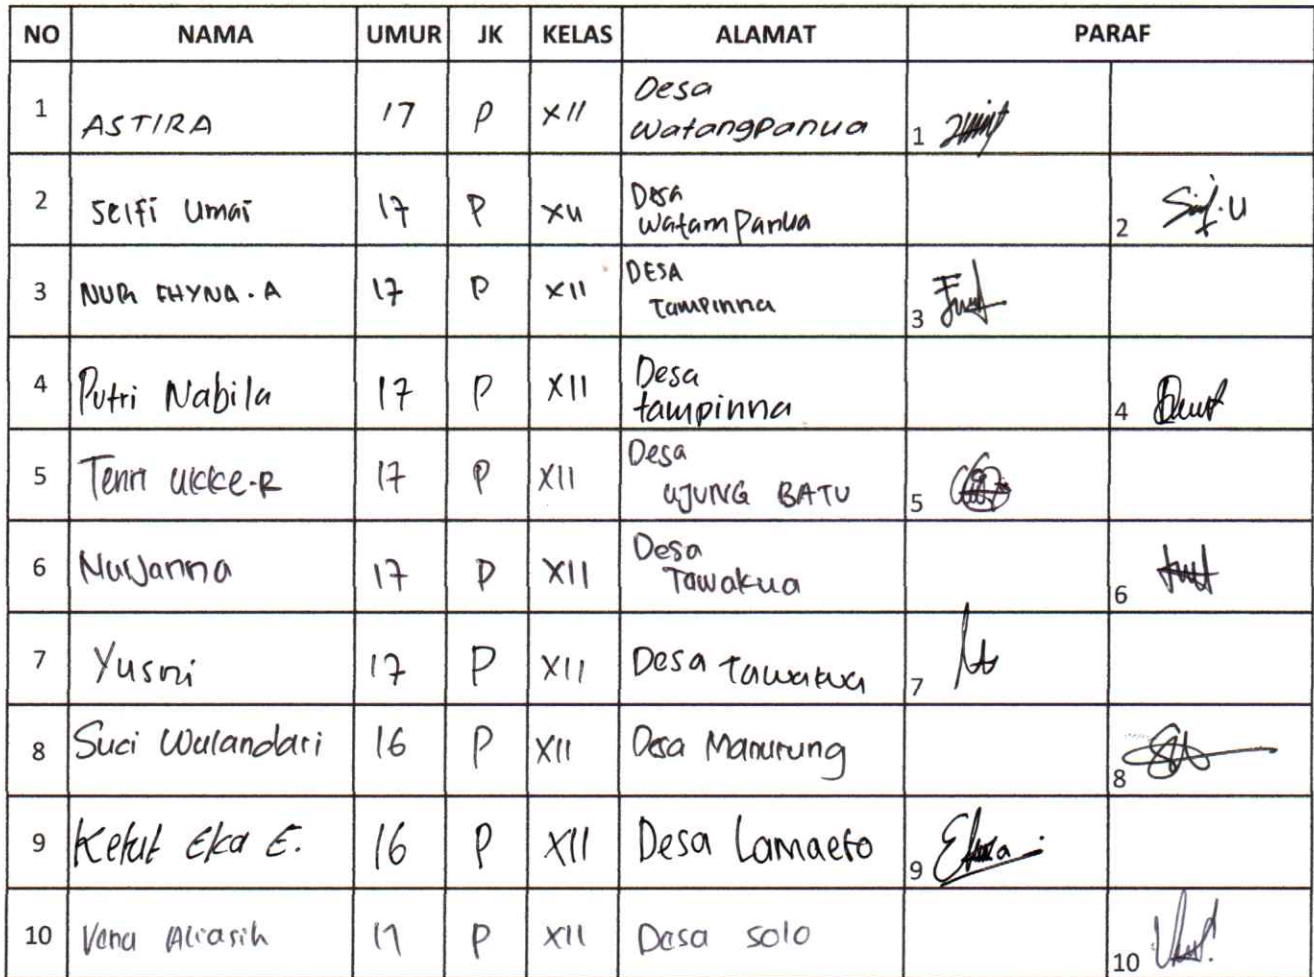 NO NAMA UMUR JK KELAS ALAMAT PARAF
1 ASTIRA 17 P XII Desa
Watangpanua 1
2 Selfi Umai 17 P XII Desa
Watampanua 2
3 NUR FHYNA.A 17 P XII DESA
Tampinna 3
4 Putri Nabila 17 P XII Desa
tampinna 4
5 Tenri Ukke.R 17 P XII Desa
UJUNG BATU 5
6 NurJanna 17 P XII Desa
Tawakua 6
7 Yusni 17 P XII Desa Tawakua 7
8 Suci Wulandari 16 P XII Desa Manurung 8
9 Ketut Eka E. 16 P XII Desa Lamaeto 9
10 Vena Aliasih 17 P XII Desa Solo 10